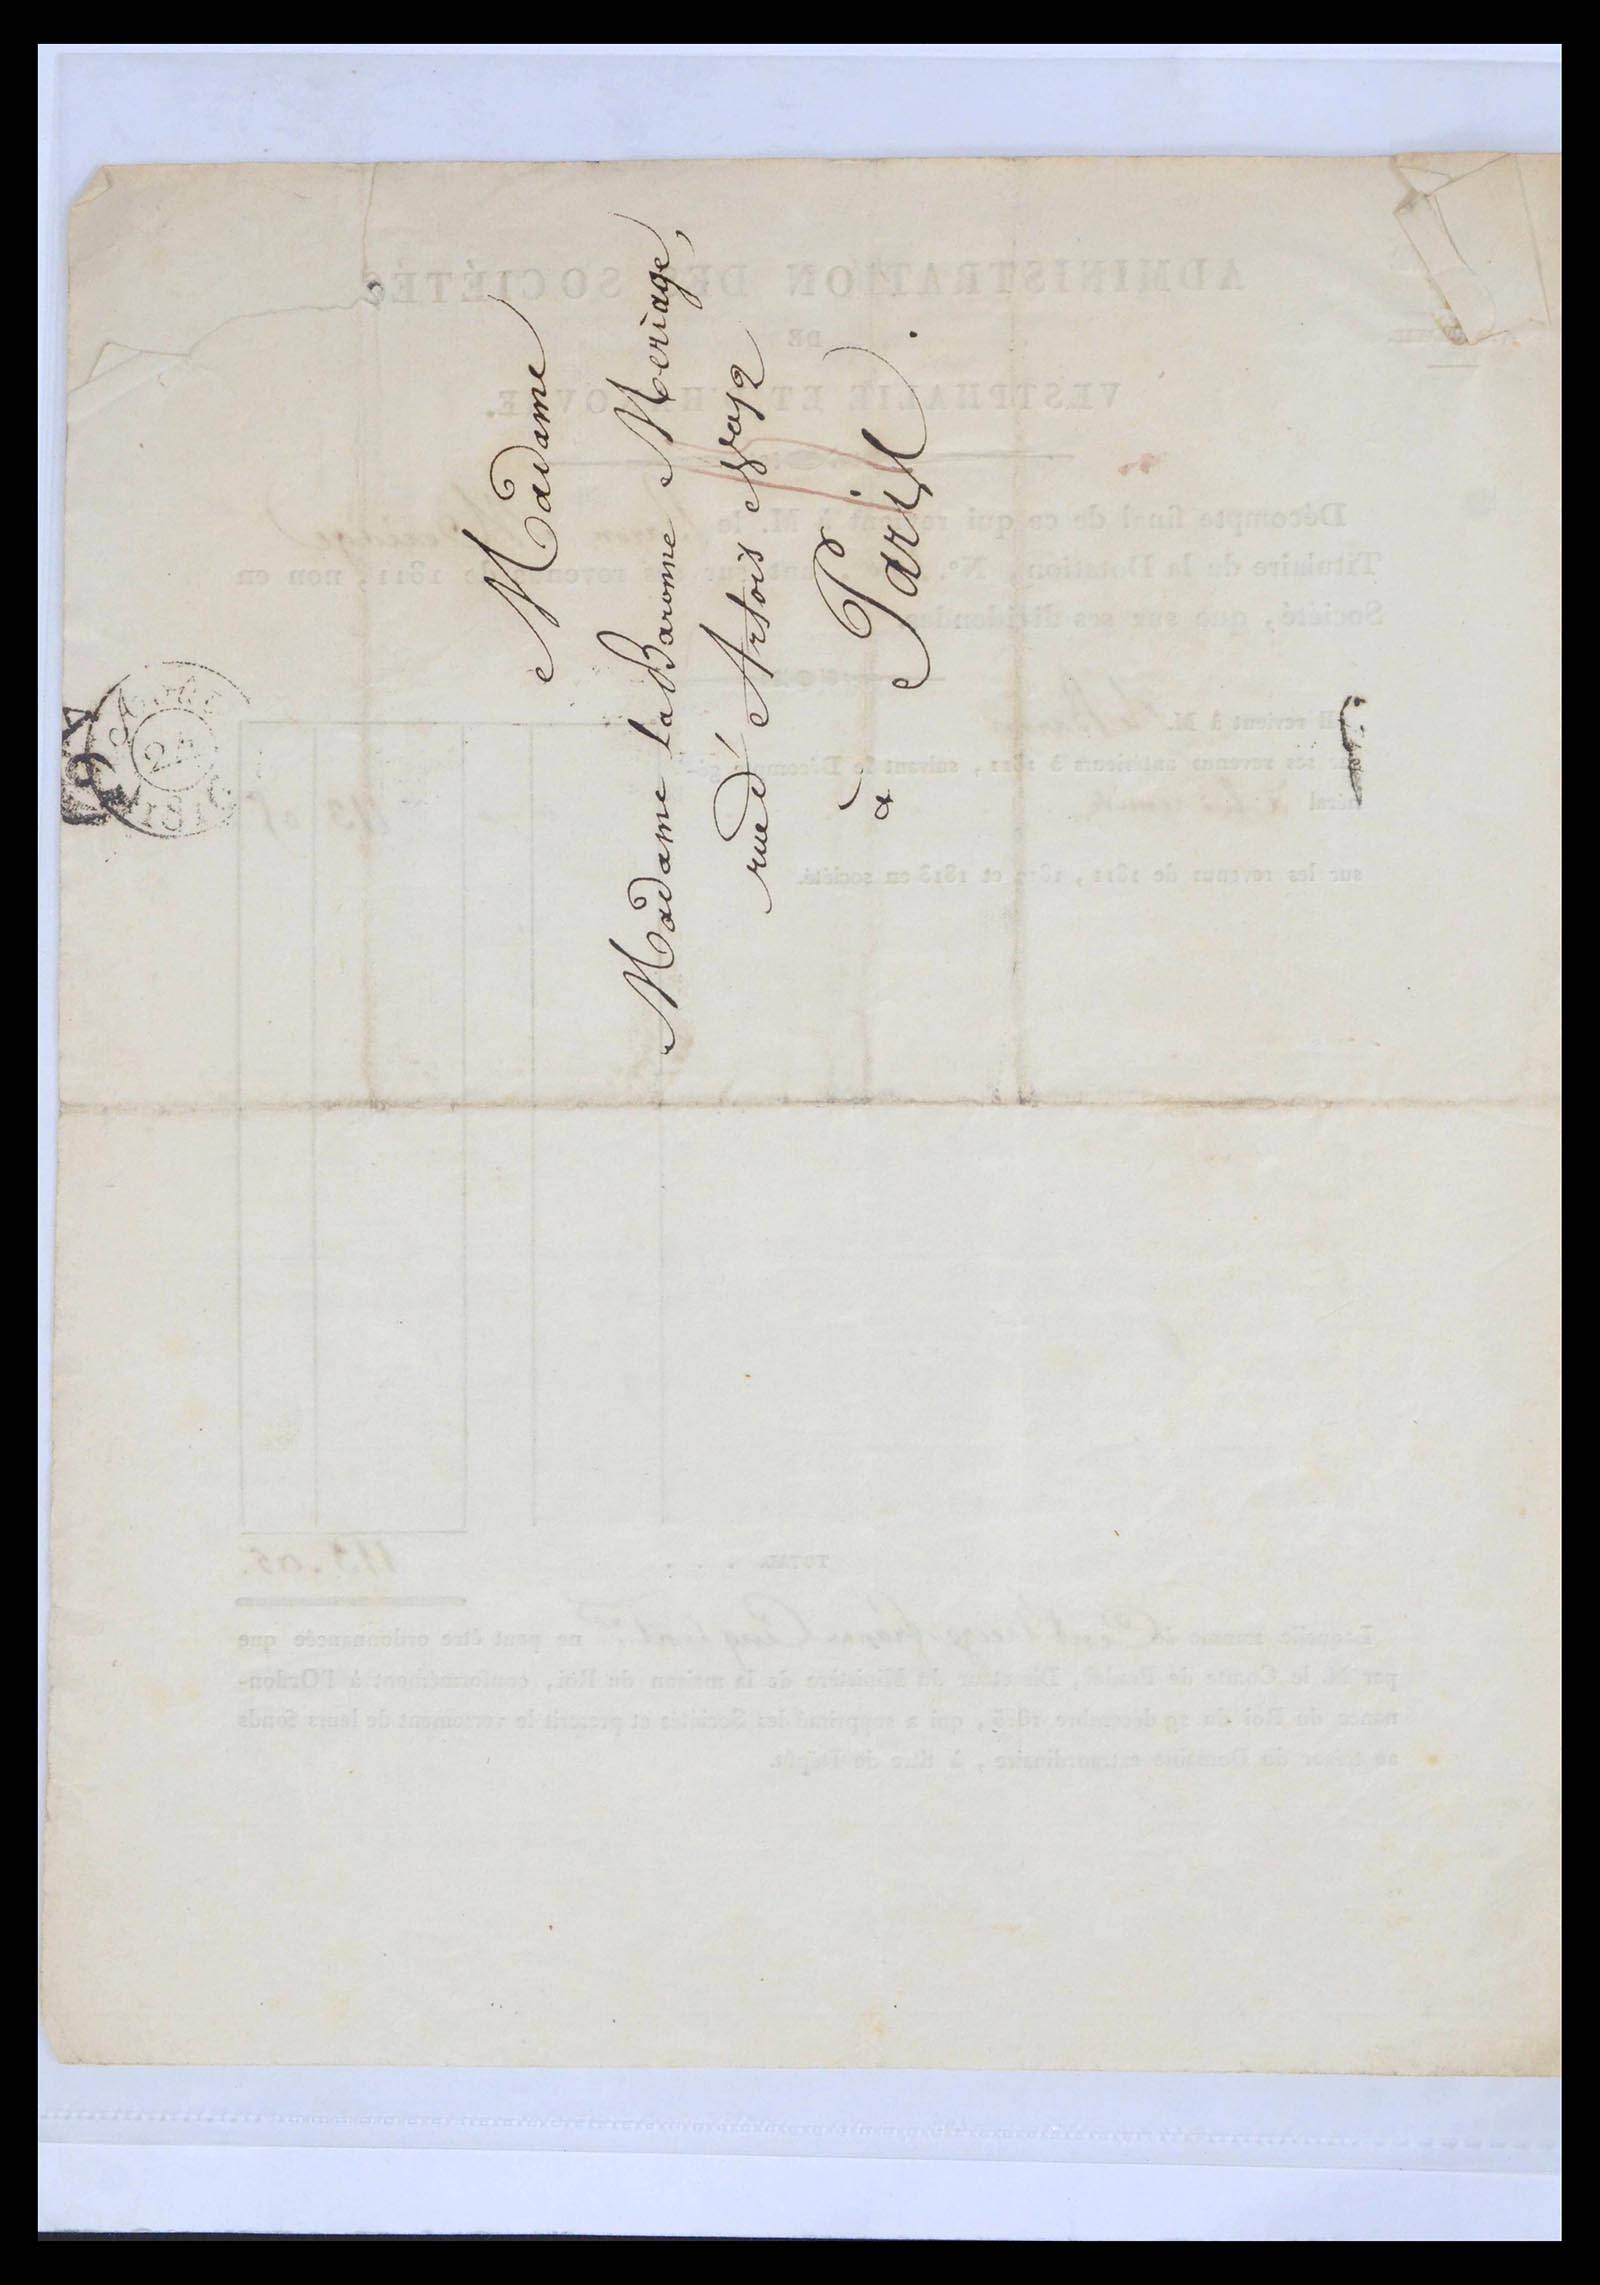 Madame
Madame la Baronne Meriage,
rue d'Artois No 12
à Paris.
24
181
ADMINISTRATION DES SOCIÉTÉS
DE
VESTPHALIE ET HANOVRE.
Décompte final de ce qui revient à M. le Baron Meriage
Titulaire de la Dotation, N°. , tant sur ses revenus de 1811, non en
Société, que sur ses dividendes
Il revient à M. le Baron
sur ses revenus antérieurs à 1811, suivant le Décompte gé-
néral
113 05
sur les revenus de 1811, 1812 et 1813 en société.
TOTAL . . . 113.05.
Laquelle somme de Cent treize francs Cinq cent.mes ne peut être ordonnancée que
par M. le Comte de Pradel, Directeur du Ministère de la maison du Roi, conformément à l'Ordon-
nance du Roi du 29 décembre , qui a supprimé les Sociétés et prescrit le versement de leurs fonds
au trésor du Domaine extraordinaire, à titre de Dépôt.